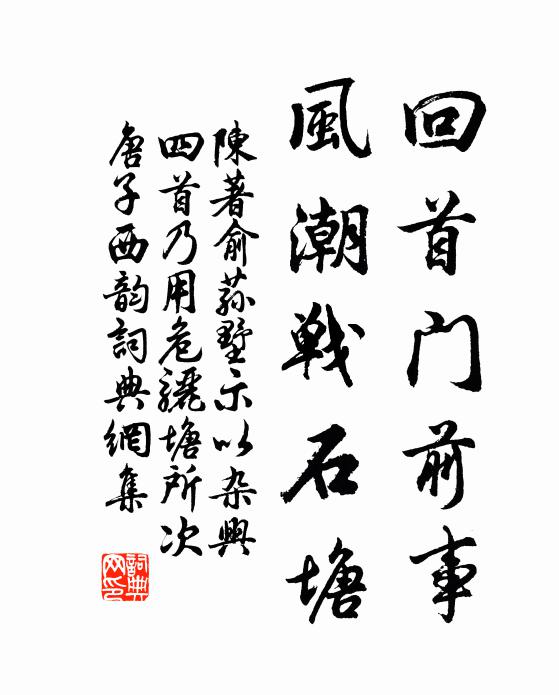 回首门前事
風潮戰石塘
陳著俞菻墅示以杂興
四首乃用危驪塘所次
唐子西韵詞典網集
詞典网印